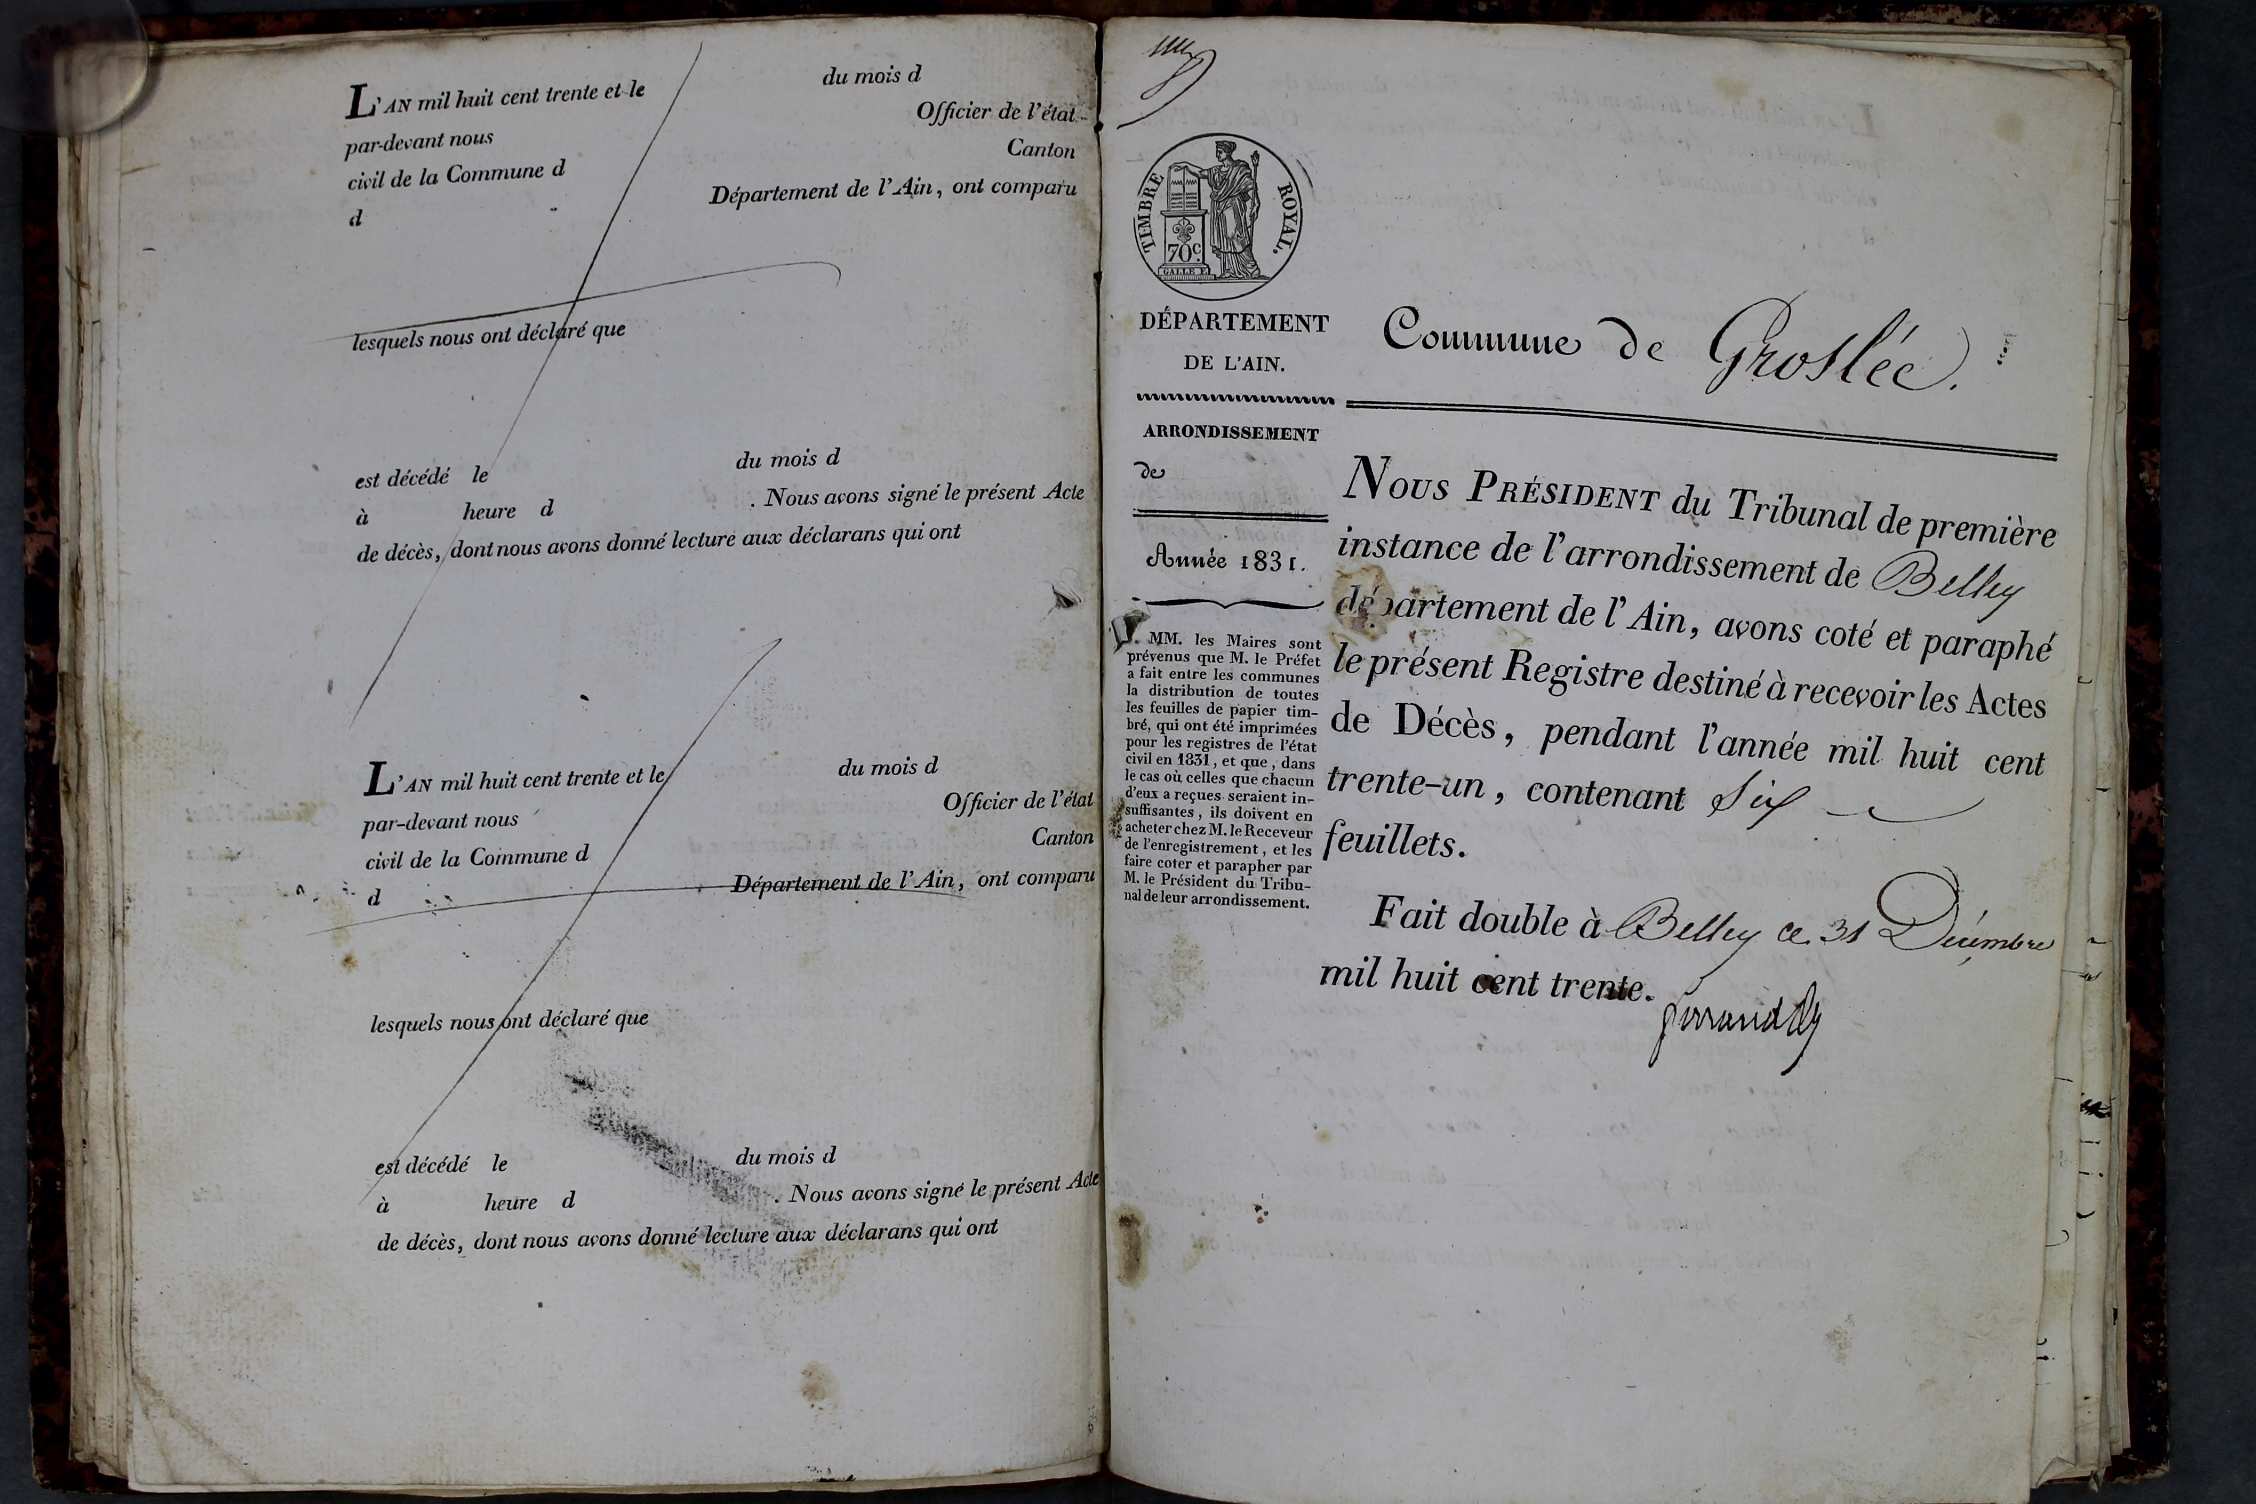 L'AN mil huit cent trente et le
du mois d
par-devant nous
Officier de l'état
civil de la Commune d
Canton
d
Département de l'Ain, ont comparu
lesquels nous ont déclaré que
est décédé le
du mois d
à heure d
. Nous avons signé le présent Acte
de décès, dont nous avons donné lecture aux déclarans qui ont
L'AN mil huit cent trente et le
du mois d
par-devant nous
Officier de l'état
civil de la Commune d
Canton
d
Département de l'Ain, ont comparu
lesquels nous ont déclaré que
est décédé le
du mois d
à heure d
. Nous avons signé le présent Acte
de décès, dont nous avons donné lecture aux déclarans qui ont
TIMBRE ROYAL.
70c.
DÉPARTEMENT
DE L'AIN.
ARRONDISSEMENT
de
Année 1831.
MM. les Maires sont
prévenus que M. le Préfet
a fait entre les communes
la distribution de toutes
les feuilles de papier tim-
bré, qui ont été imprimées
pour les registres de l'état
civil en 1831, et que, dans
le cas où celles que chacun
d'eux a reçues seraient in-
suffisantes, ils doivent en
acheter chez M. le Receveur
de l'enregistrement, et les
faire coter et parapher par
M. le Président du Tribu-
nal de leur arrondissement.
Commune de Groslée.
NOUS PRÉSIDENT du Tribunal de première
instance de l'arrondissement de Belley
département de l'Ain, avons coté et paraphé
le présent Registre destiné à recevoir les Actes
de Décès, pendant l'année mil huit cent
trente-un, contenant Six
feuillets.
Fait double à Belley ce 31 Décembre
mil huit cent trente.